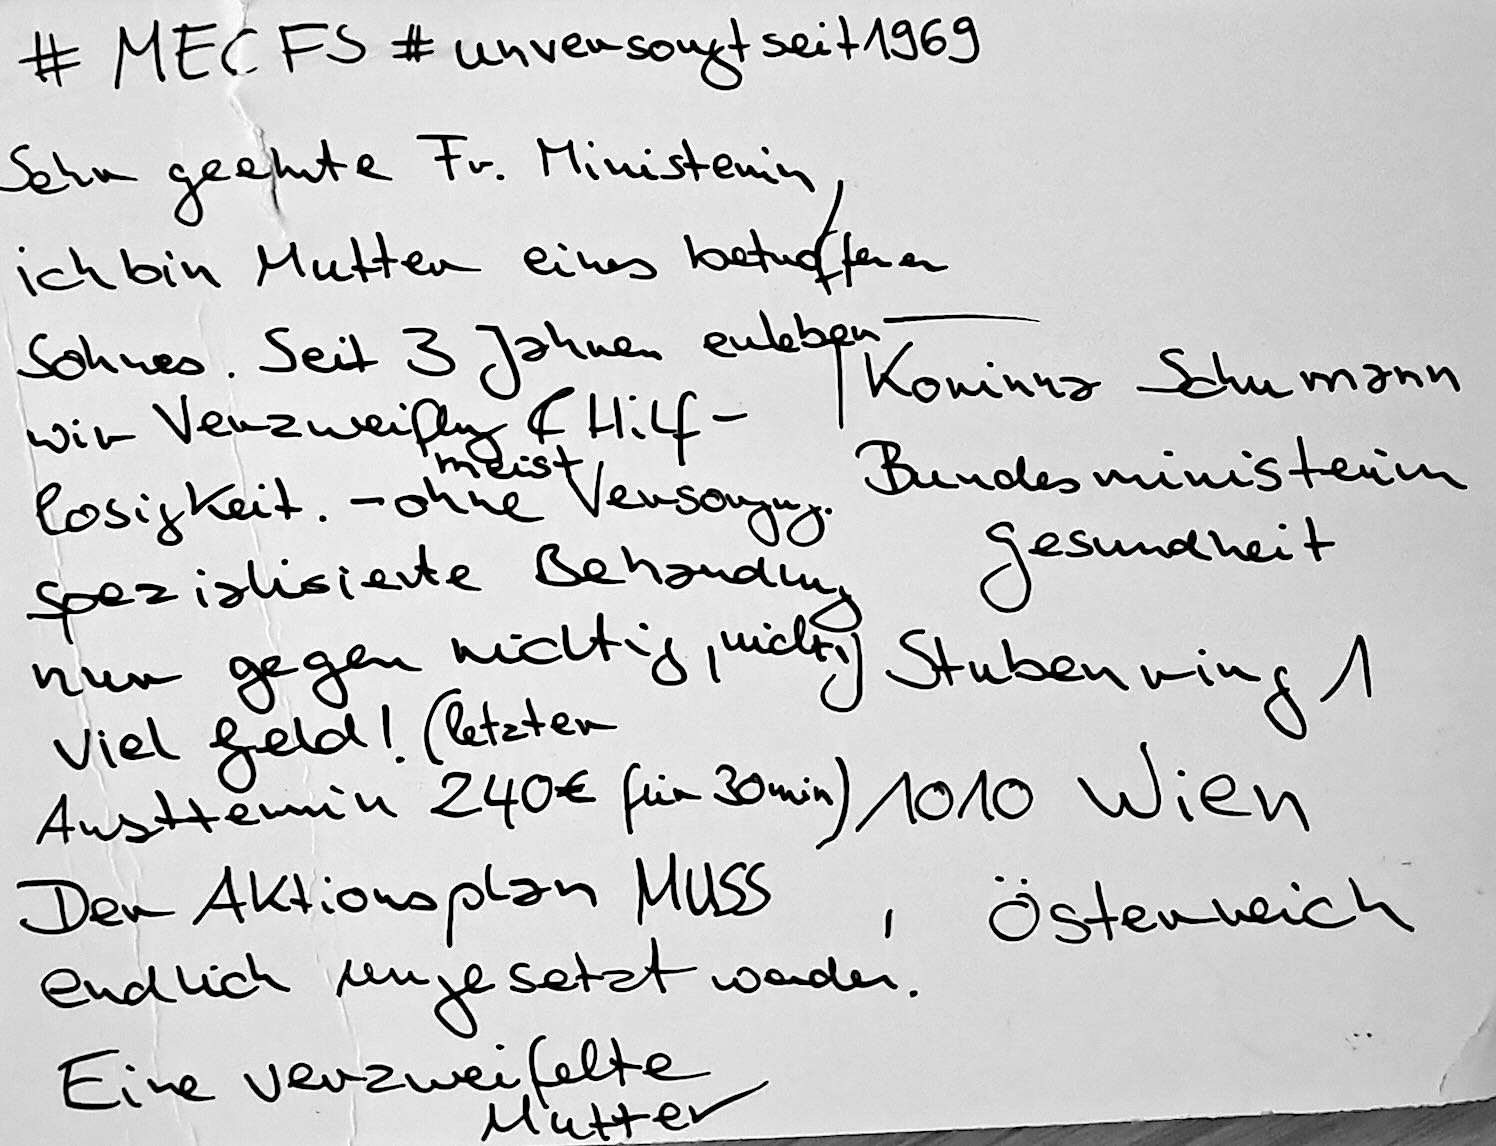 #MECFS #unversorgtseit1969
Sehr geehrte Fr. Ministerin,
ich bin Mutter eines betroffenen
Sohnes. Seit 3 Jahren erleben
wir Verzweiflung & Hilf-
losigkeit. - meist ohne Versorgung.
spezialisierte Behandlung
nur gegen richtig, richtig
viel Geld! (letzter
Arzttermin 240€ für 30min)
Der Aktionsplan MUSS
endlich umgesetzt werden!
Eine verzweifelte
Mutter
Korinna Schumann
Bundesministerin
Gesundheit
Stubenring 1
1010 Wien
Österreich